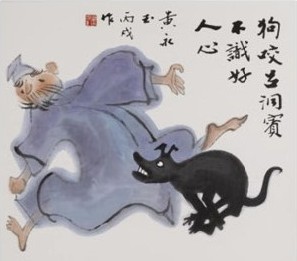 狗咬呂洞賓
不識好
人心
黄永
玉
丙戌
作